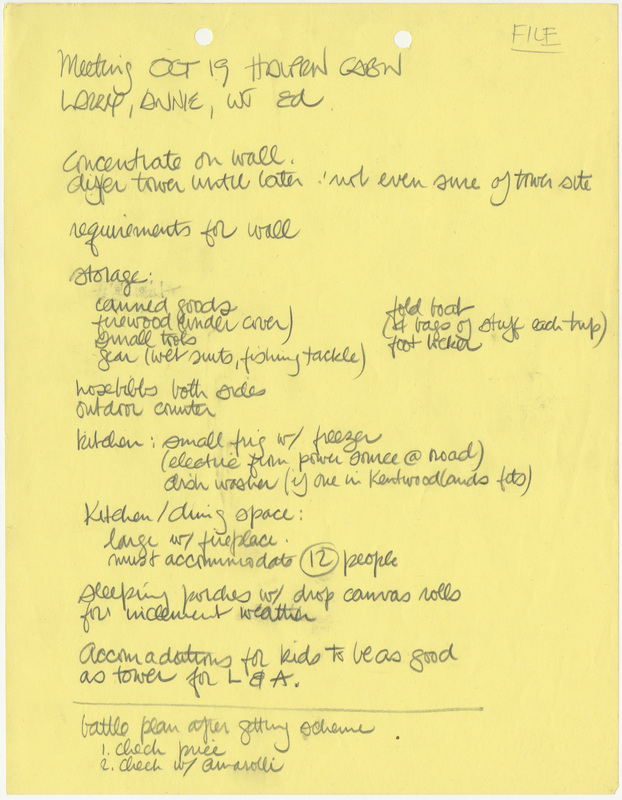 FILE
Meeting OCT 19 HALPRIN CABIN
LARRY, ANNIE, WT Ed
Concentrate on wall.
differ tower until later : not even sure of tower site
requirements for wall
storage:
canned goods
firewood (under cover)
small tools
gear (wet suits, fishing tackle)
fold boat
(4 bags of stuff each trip)
foot locker
hosebibbs both sides
outdoor counter
kitchen: small frig w/ freezer
(electric from power source @ road)
dish washer (if one in Kentwoodlands fds)
Kitchen/dining space:
large w/ fireplace.
must accommodate 12 people
sleeping porches w/ drop canvas rolls
for inclement weather
Accomadations for kids to be as good
as tower for L & A.
battle plan after getting scheme
1. check price
2. check w/ amarolli